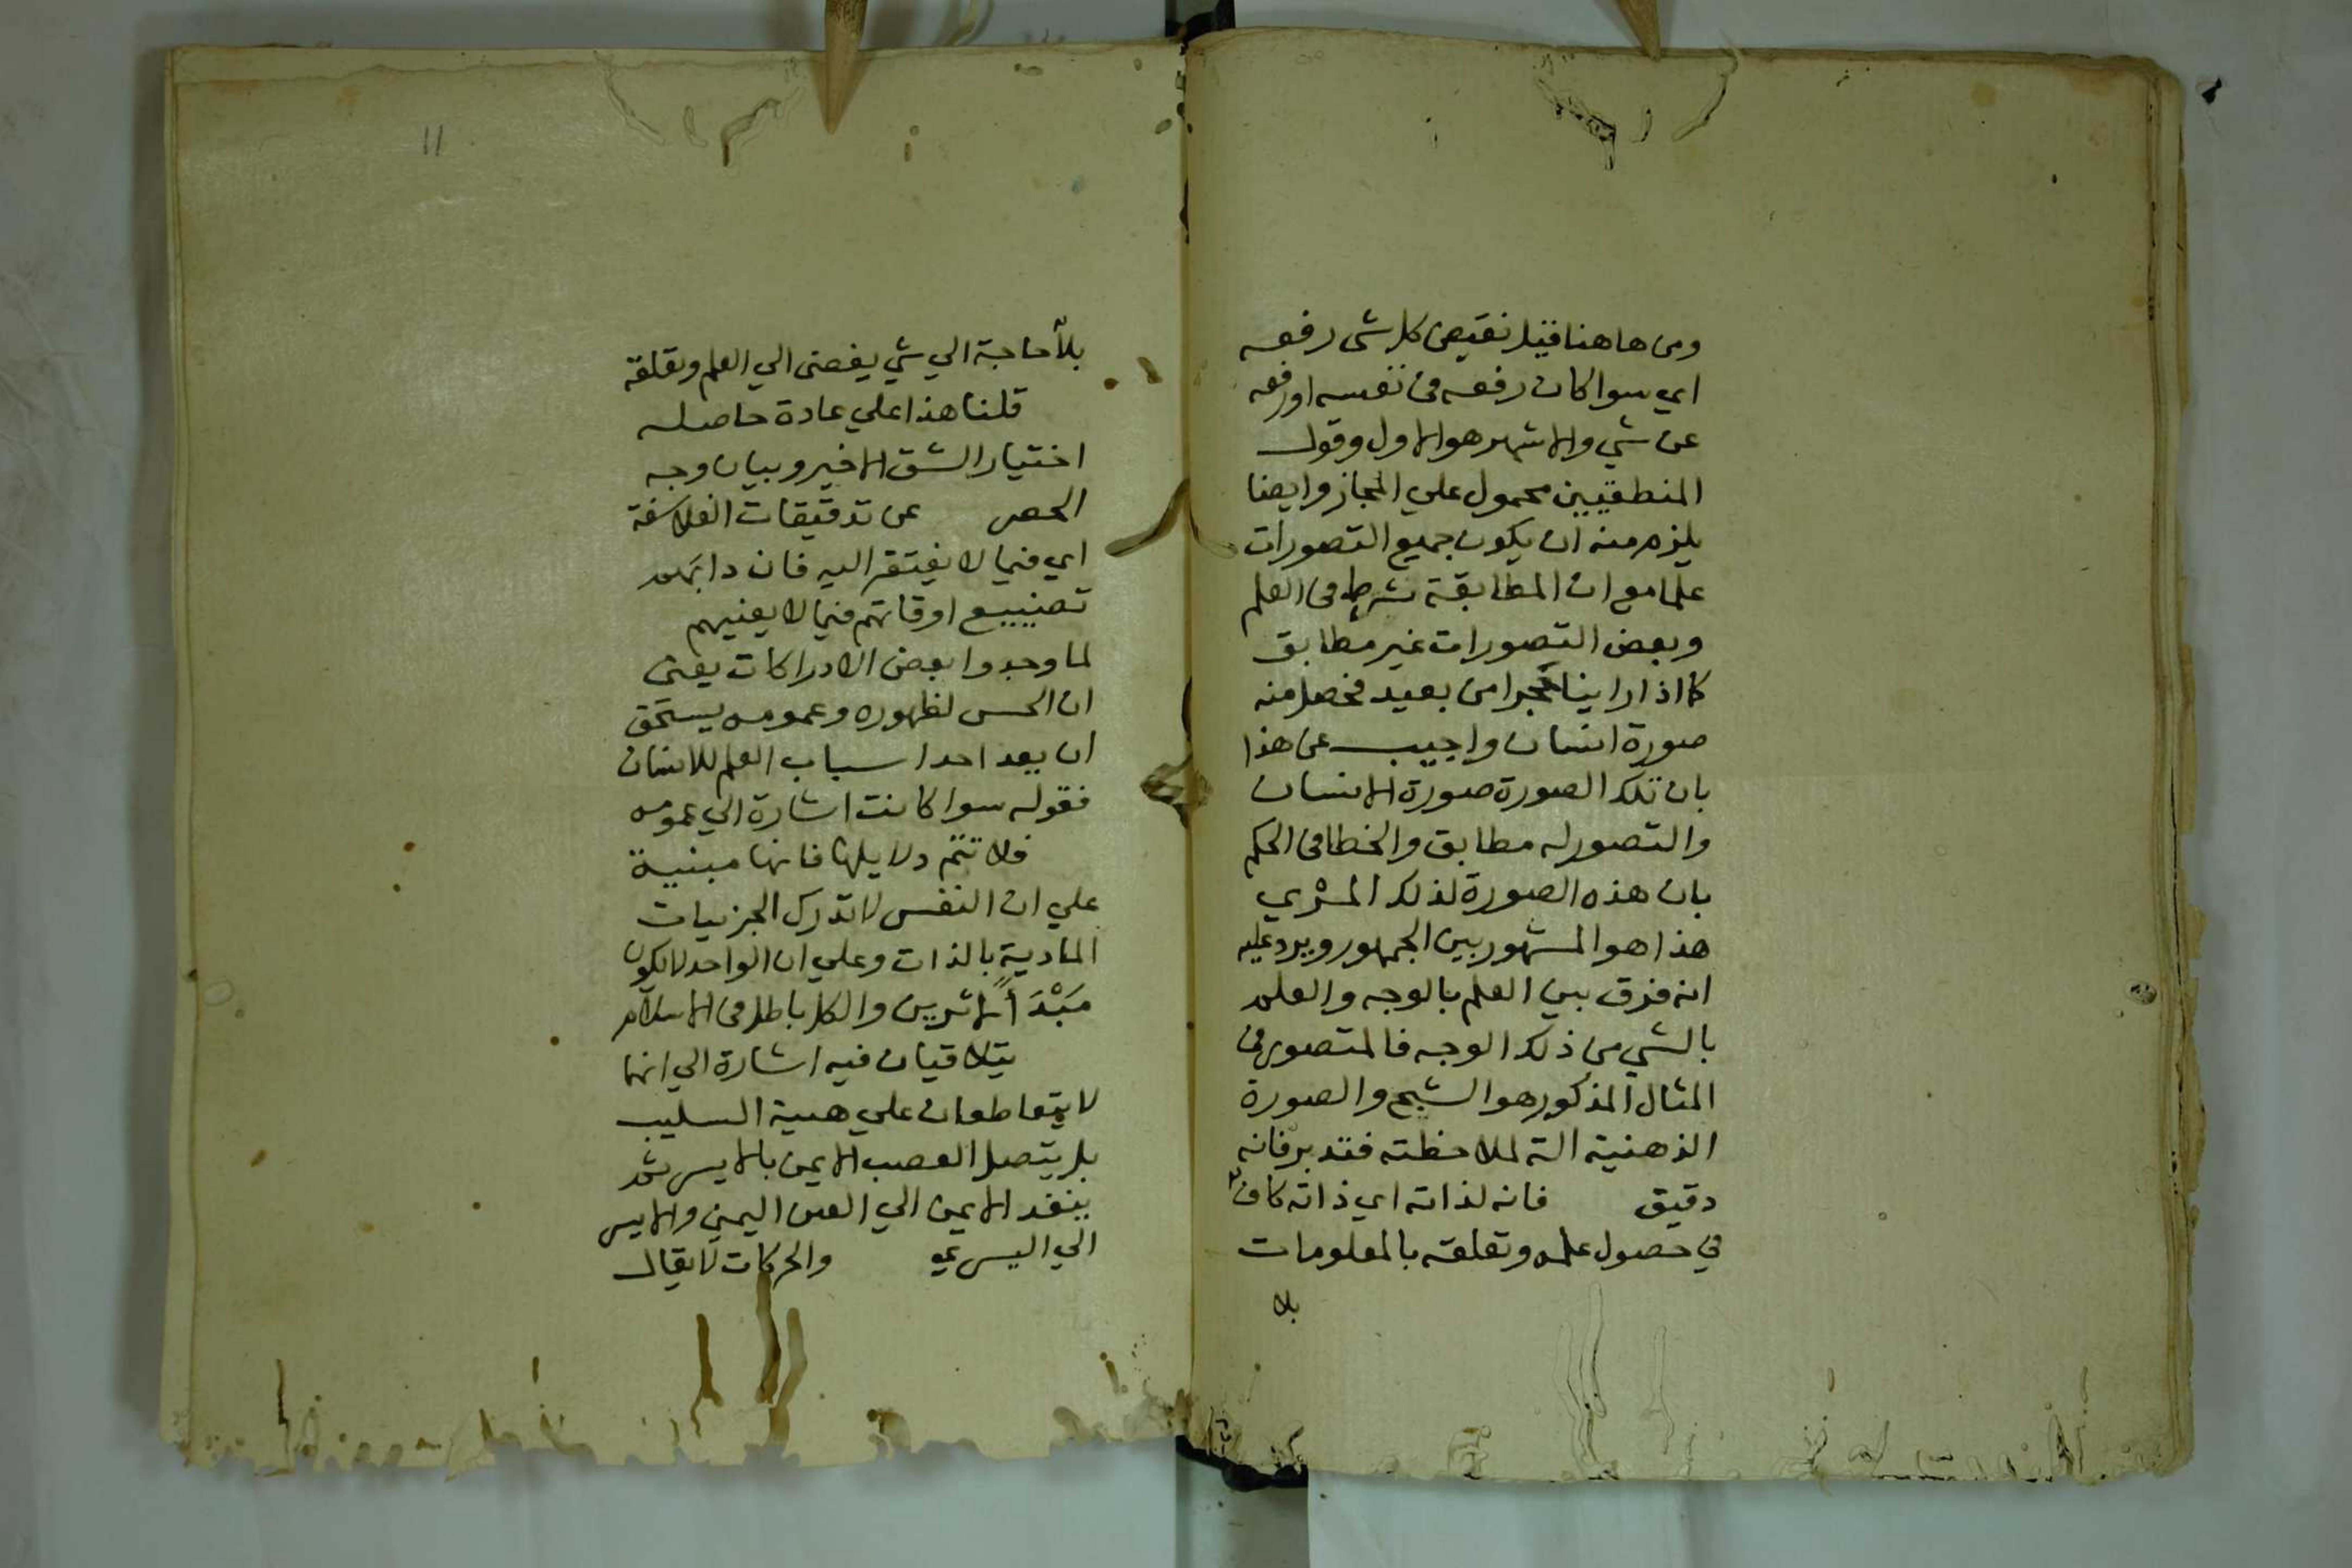 ومن هاهنا قيل نقيض كل شى رفعه
اي سوا كان رفعه فى نفسه او رفعه
عن شي والاشهر هو الاول وقول
المنطقيين محمول علي المجاز وايضا
يلزم منه ان يكون جميع التصورات
علما مع ان المطابقة شرط فى العلم
وبعض التصورات غير مطابق
كما اذا راينا حجرا من بعيد فحصل منه
صورة انسان واجيب عن هذا
بان تلك الصورة صورة الانسان
والتصور له مطابق والخطا فى الحكم
بان هذه الصورة لذلك المرئي
هذا هو المشهور بين الجمهور ويرد عليه
انه فرق بين العلم بالوجه والعلم
بالشي من ذلك الوجه فالمتصور فى
المثال المذكور هو الشبح والصورة
الذهنية الة لملاحظته فتدبر فانه
دقيق فانه لذاته اي ذاته كاف
في حصول علمه وتعلقه بالمعلومات
بلا
11
بلا حاجة الي شي يفضى الي العلم وتعلقه
قلنا هذا علي عادة حاصله
اختيار الشق الاخير وبيان وجه
الحصر عن تدقيقات الفلاسفة
اي فيما لا يفتقر اليه فان دابهم
تضييع اوقاتهم فيما لا يعنيهم
لما وجدوا بعض الادراكات يعنى
ان الحس لظهوره وعمومه يستحق
ان يعد احد اسباب العلم للانسان
فقوله سوا كانت اشارة الي عمومه
فلا تتم دلايلها فانها مبنية
علي ان النفس لا تدرك الجزييات
المادية بالذات وعلي ان الواحد لا يكون
مَبْدَأً لاثرين والكل باطل فى الاسلام
يتلاقيان فيه اشارة الي انهما
لا يتقاطعان علي هيية السليب
بل يتصل العصب الايمن بالايسر ثم
ينفد الايمن الي العين اليمنى والايسر
الي اليسري والحركات لا يقال